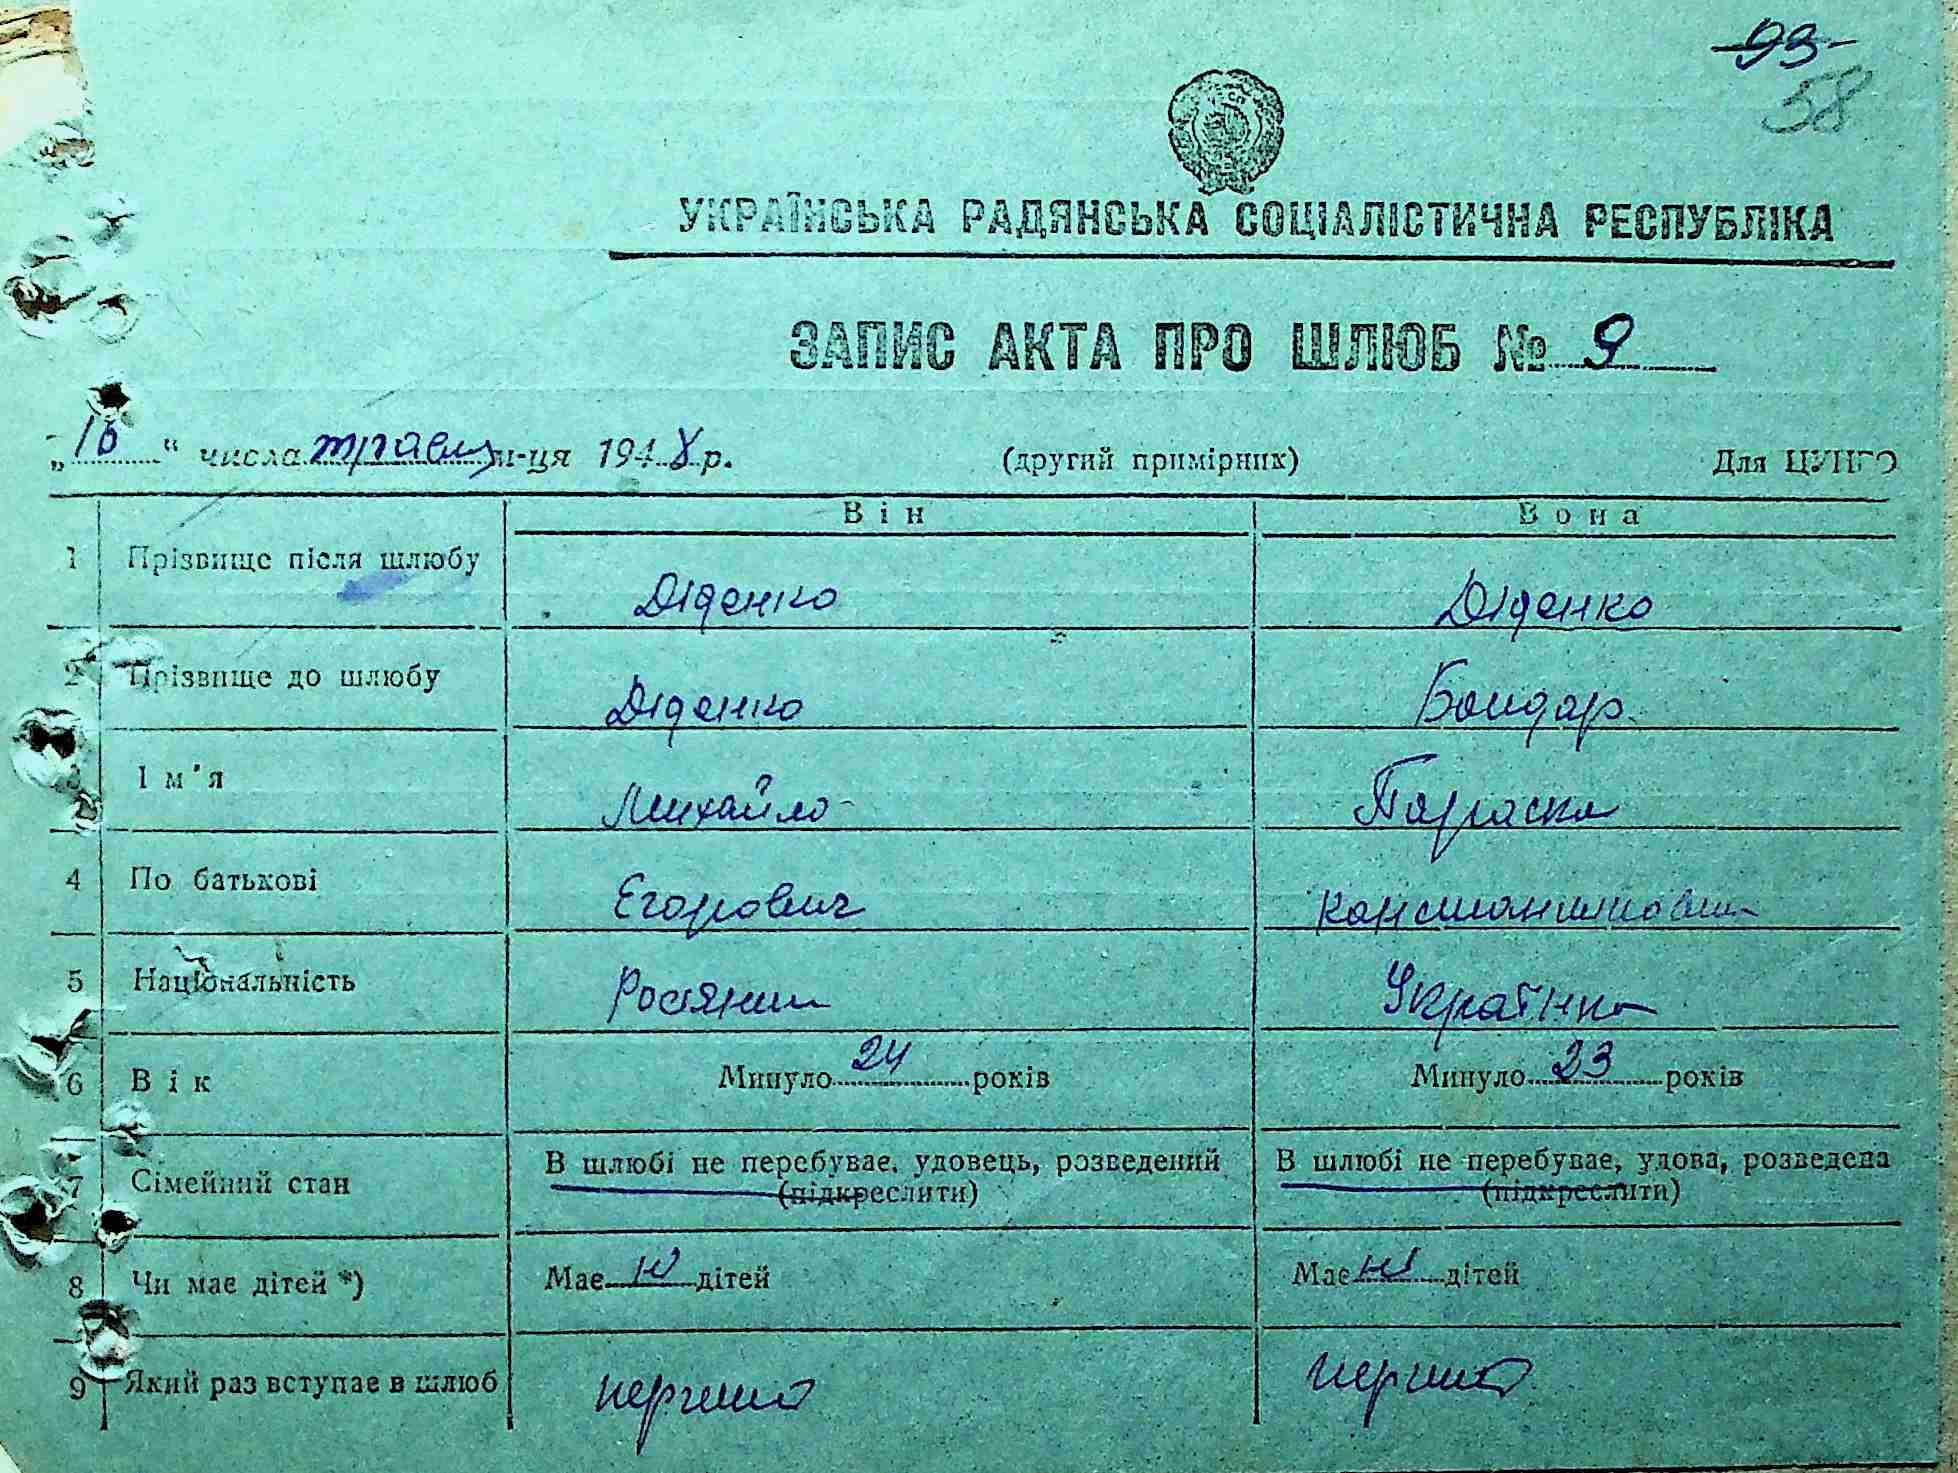 93
58
УКРАЇНСЬКА РАДЯНСЬКА СОЦІАЛІСТИЧНА РЕСПУБЛІКА
ЗАПИС АКТА ПРО ШЛЮБ № 9
„16“ числа травц м-ця 1948 р. (другий примірник) Для ЦУНГО
Він Вона
1 Прізвище після шлюбу Діденко Діденко
2 Прізвище до шлюбу Діденко Бондар
3 Ім'я Михайло Параска
4 По батькові Єгорович Константиновна
5 Національність Росіянин Українка
6 Вік Минуло 24 років Минуло 23 років
7 Сімейний стан В шлюбі не перебуває, удовець, розведений В шлюбі не перебуває, удова, розведена
(підкреслити) (підкреслити)
8 Чи має дітей *) Має ні дітей Має ні дітей
9 Який раз вступає в шлюб перший перший